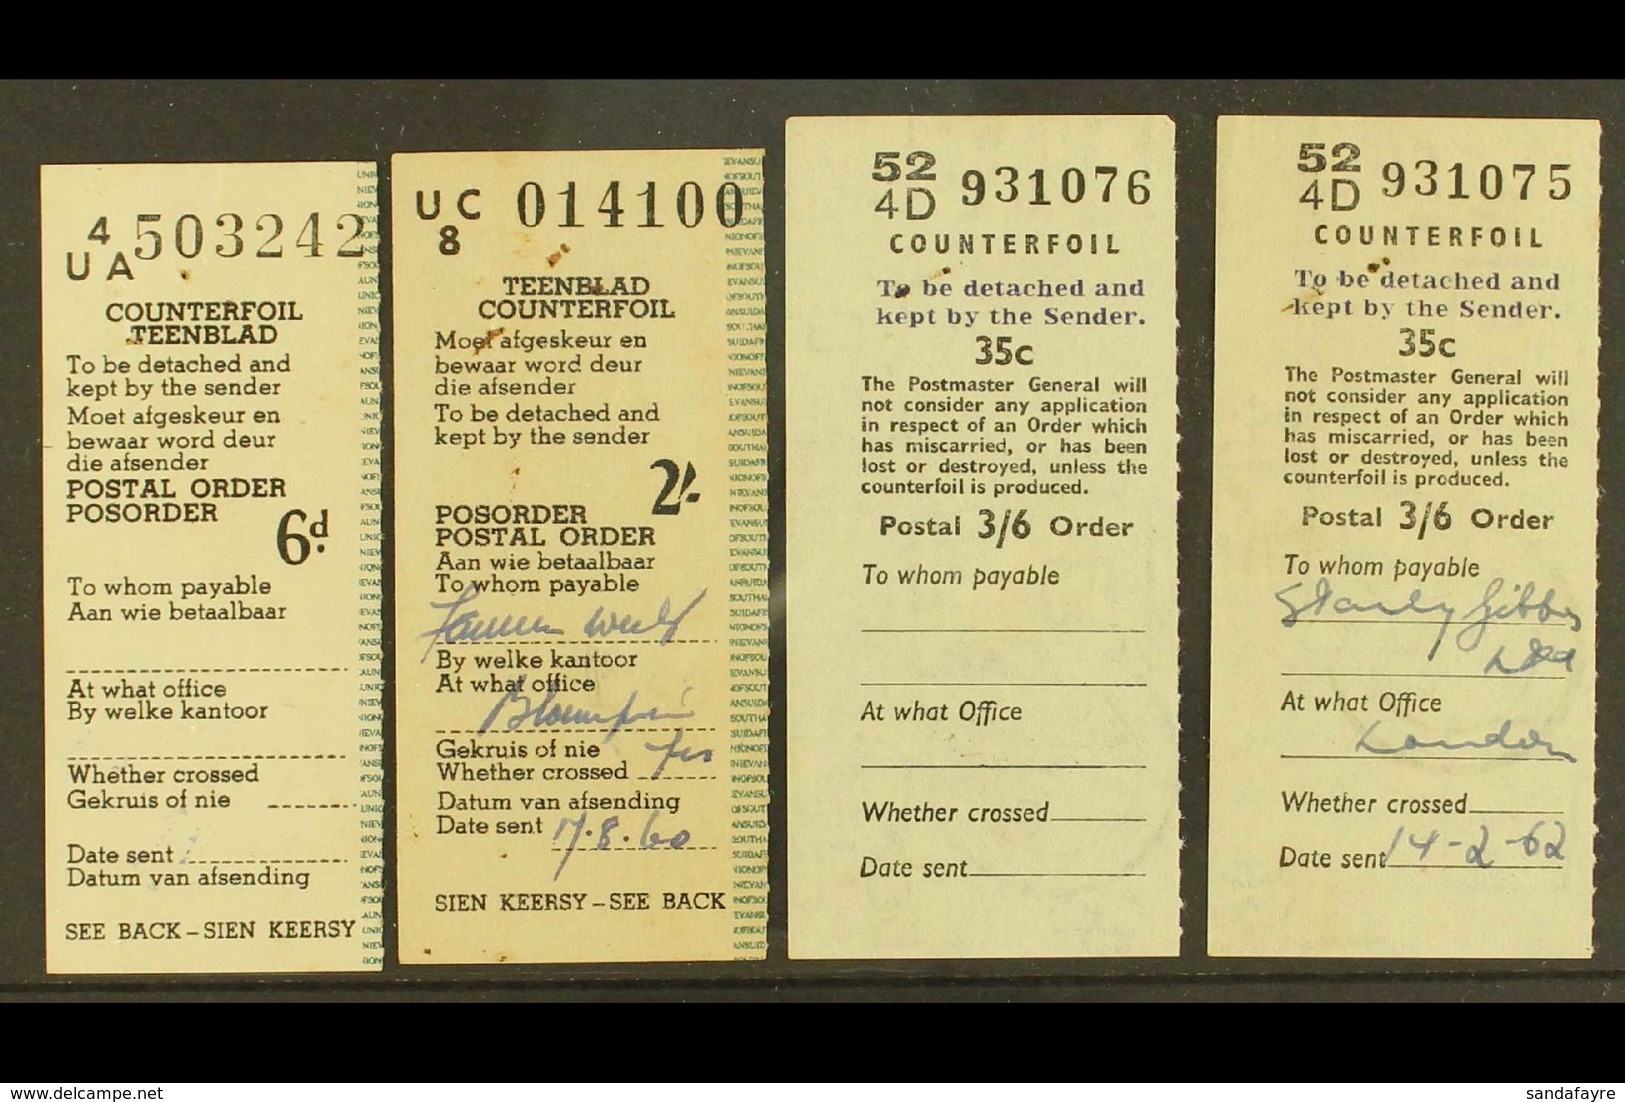 4
UA 503242
COUNTERFOIL
TEENBLAD
To be detached and
kept by the sender
Moet afgeskeur en
bewaar word deur
die afsender
POSTAL ORDER
POSORDER
6d.
To whom payable
Aan wie betaalbaar
At what office
By welke kantoor
Whether crossed
Gekruis of nie
Date sent
Datum van afsending
SEE BACK – SIEN KEERSY
UC 014100
8
TEENBLAD
COUNTERFOIL
Moet afgeskeur en
bewaar word deur
die afsender
To be detached and
kept by the sender
2/-
POSORDER
POSTAL ORDER
Aan wie betaalbaar
To whom payable
By welke kantoor
At what office
Gekruis of nie
Whether crossed
Datum van afsending
Date sent 17.8.60
SIEN KEERSY – SEE BACK
52
4D 931076
COUNTERFOIL
To be detached and
kept by the Sender.
35c
The Postmaster General will
not consider any application
in respect of an Order which
has miscarried, or has been
lost or destroyed, unless the
counterfoil is produced.
Postal 3/6 Order
To whom payable
At what Office
Whether crossed
Date sent
52
4D 931075
COUNTERFOIL
To be detached and
kept by the Sender.
35c
The Postmaster General will
not consider any application
in respect of an Order which
has miscarried, or has been
lost or destroyed, unless the
counterfoil is produced.
Postal 3/6 Order
To whom payable
Stanley Gibbons
Ltd
At what Office
London
Whether crossed
Date sent 14-2-62
Delcampe.net
sandafayre